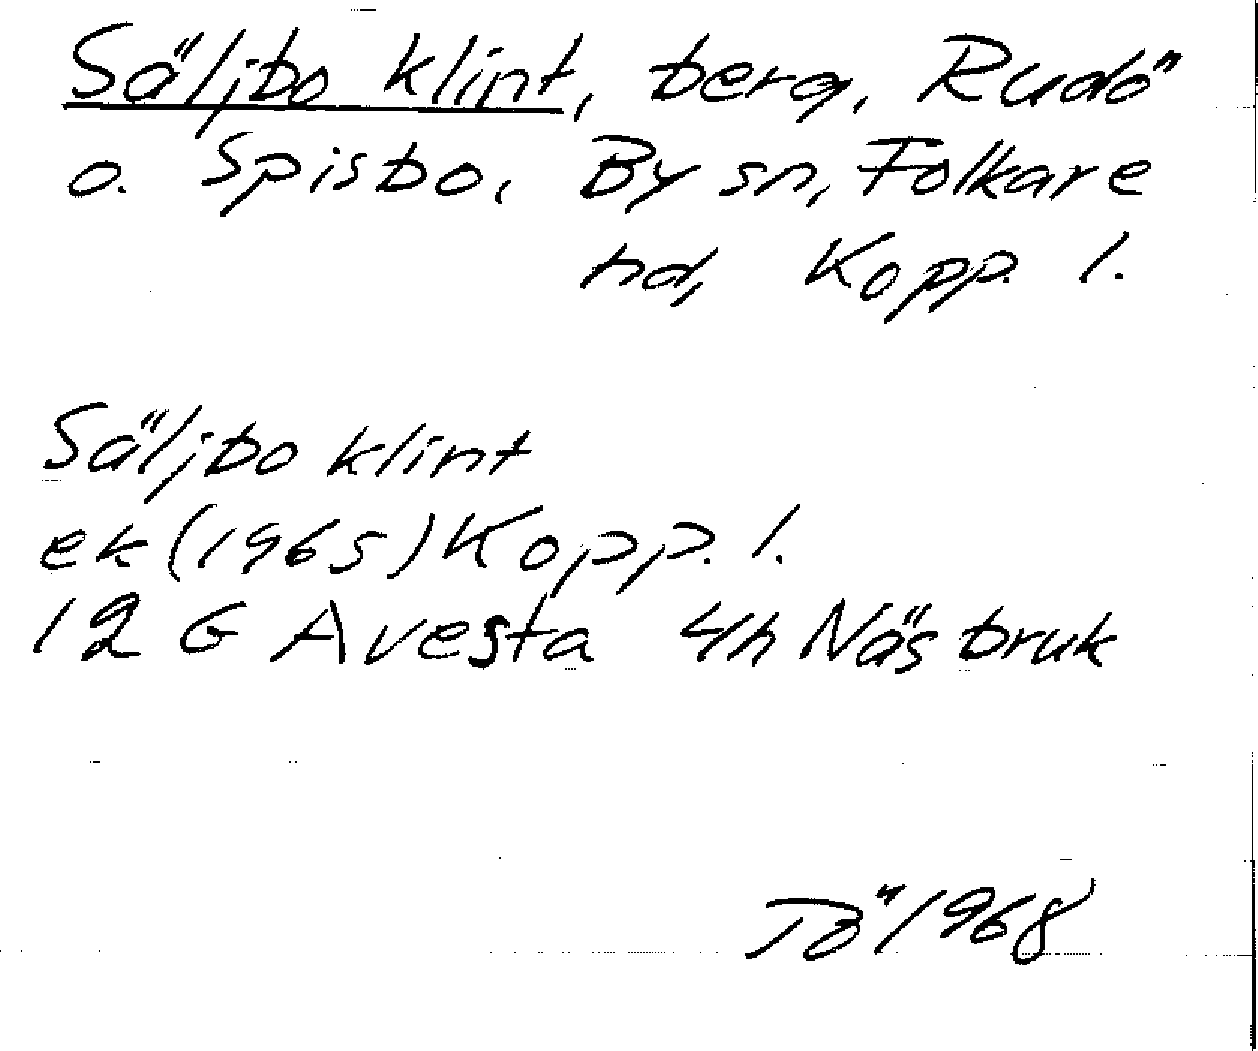 Säljbo klint, berg, Rudö
o. Spisbo, By sn, Folkare
hd, Kopp. l.
Säljbo klint
ek (1965) Kopp. l.
12 G Avesta 4h Näs bruk
Tö 1968